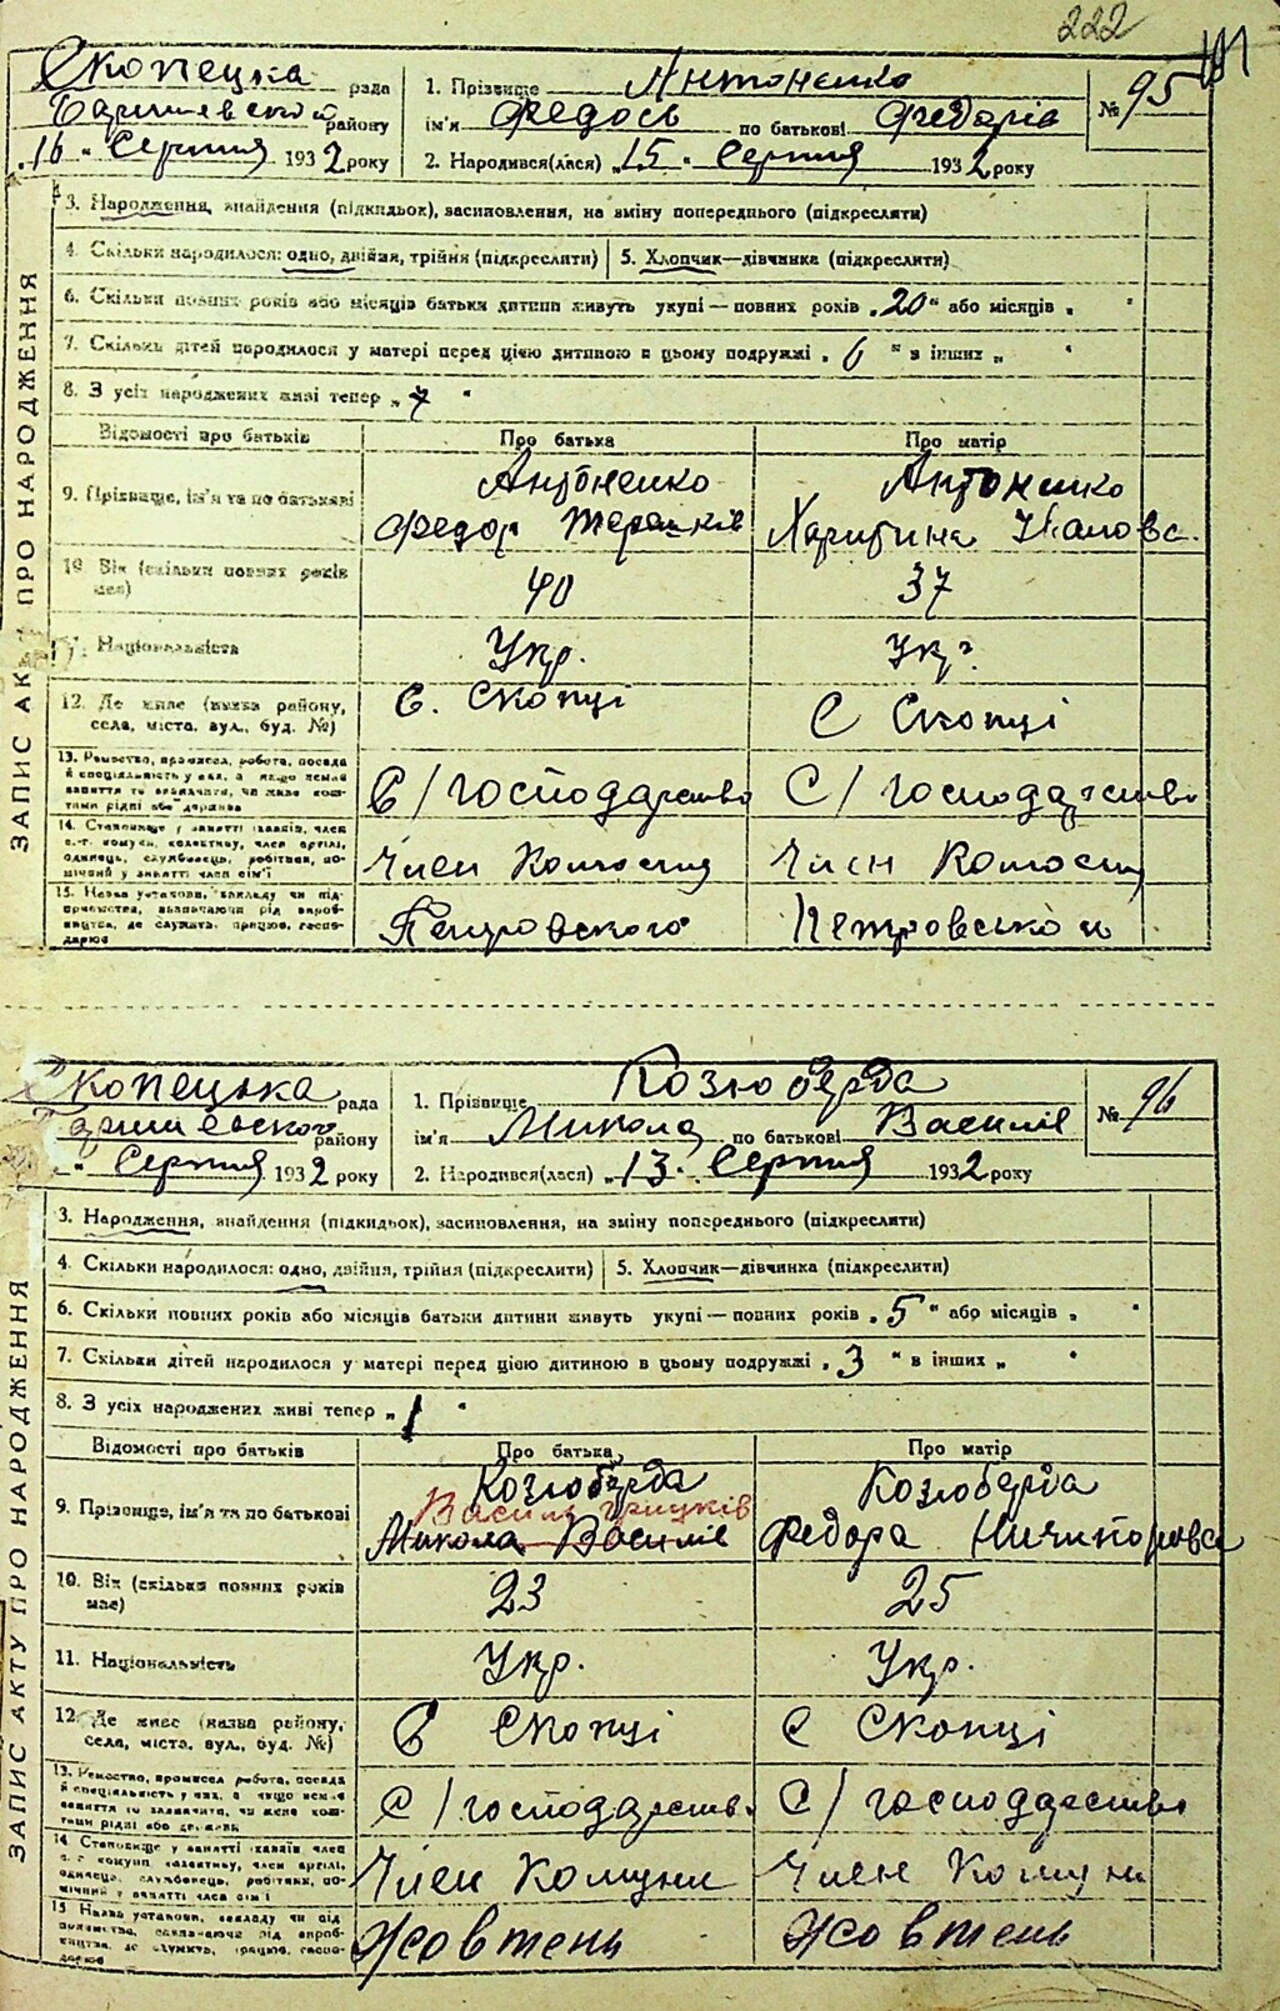 222
Скопецька рада
Баришевской району
„16" Серпня 1932 року
1. Прізвище Антоненко
ім'я Федось по батькові Федорів
2. Народився(лася) „15" Серпня 1932 року
№ 95
ЗАПИС АКТУ ПРО НАРОДЖЕННЯ
3. Народження, знайдення (підкидьок), засиновлення, на зміну попереднього (підкреслити)
4. Скільки народилося: одно, двійня, трійня (підкреслити) 5. Хлопчик—дівчинка (підкреслити)
6. Скільки повних років або місяців батьки дитини живуть укупі — повних років „20" або місяців „ "
7. Скільки дітей народилося у матері перед цією дитиною в цьому подружжі „6" в інших „ "
8. З усіх народжених живі тепер „7"
Відомості про батьків Про батька Про матір
9. Прізвище, ім'я та по батькові Антоненко Антоненко
Федор Харитина Ивановс.
10. Вік (скільки повних років має) 40 37
11. Національність Укр. Укр.
12. Де живе (назва району, села, міста, вул., буд. №) С. Скопці С Скопці
13. Ремество, промисел, робота, посада й спеціяльність у них, а якщо немає заняття то зазначити, чи живе коштами рідні або держави С/господарство С/господарство
14. Становище у занятті хазяїн, член с.-г. комуни, колективу, член артілі, одинець, службовець, робітник, помічний у занятті член сім'ї Член Член
15. Назва установи, закладу чи підприємства, визначаючи рід виробництва, де служить, працює, господарює Петровского Петровського
Скопецька рада
Баришевского району
" Серпня 1932 року
1. Прізвище Козюберда
ім'я Микола по батькові Василів
2. Народився(лася) „13" Серпня 1932 року
№ 96
ЗАПИС АКТУ ПРО НАРОДЖЕННЯ
3. Народження, знайдення (підкидьок), засиновлення, на зміну попереднього (підкреслити)
4. Скільки народилося: одно, двійня, трійня (підкреслити) 5. Хлопчик—дівчинка (підкреслити)
6. Скільки повних років або місяців батьки дитини живуть укупі — повних років „5" або місяців „ "
7. Скільки дітей народилося у матері перед цією дитиною в цьому подружжі „3" в інших „ "
8. З усіх народжених живі тепер „1"
Відомості про батьків Про батька Про матір
9. Прізвище, ім'я та по батькові Козюберда Козюберда
Василь Грицків
Микола Василів Федора Ничипоровса
10. Вік (скільки повних років має) 23 25
11. Національність Укр. Укр.
12. Де живе (назва району, села, міста, вул., буд. №) С Скопці С Скопці
13. Ремество, промисел, робота, посада й спеціяльність у них, а якщо немає заняття то зазначити, чи живе коштами рідні або держави С/господарств. С/господарство
14. Становище у занятті хазяїн, член с.-г. комуни, колективу, член артілі, одинець, службовець, робітник, помічний у занятті член сім'ї Член Комуни Член Комуни
15. Назва установи, закладу чи підприємства, зазначаючи рід виробництва, де служить, працює, господарює Жовтень Жовтень